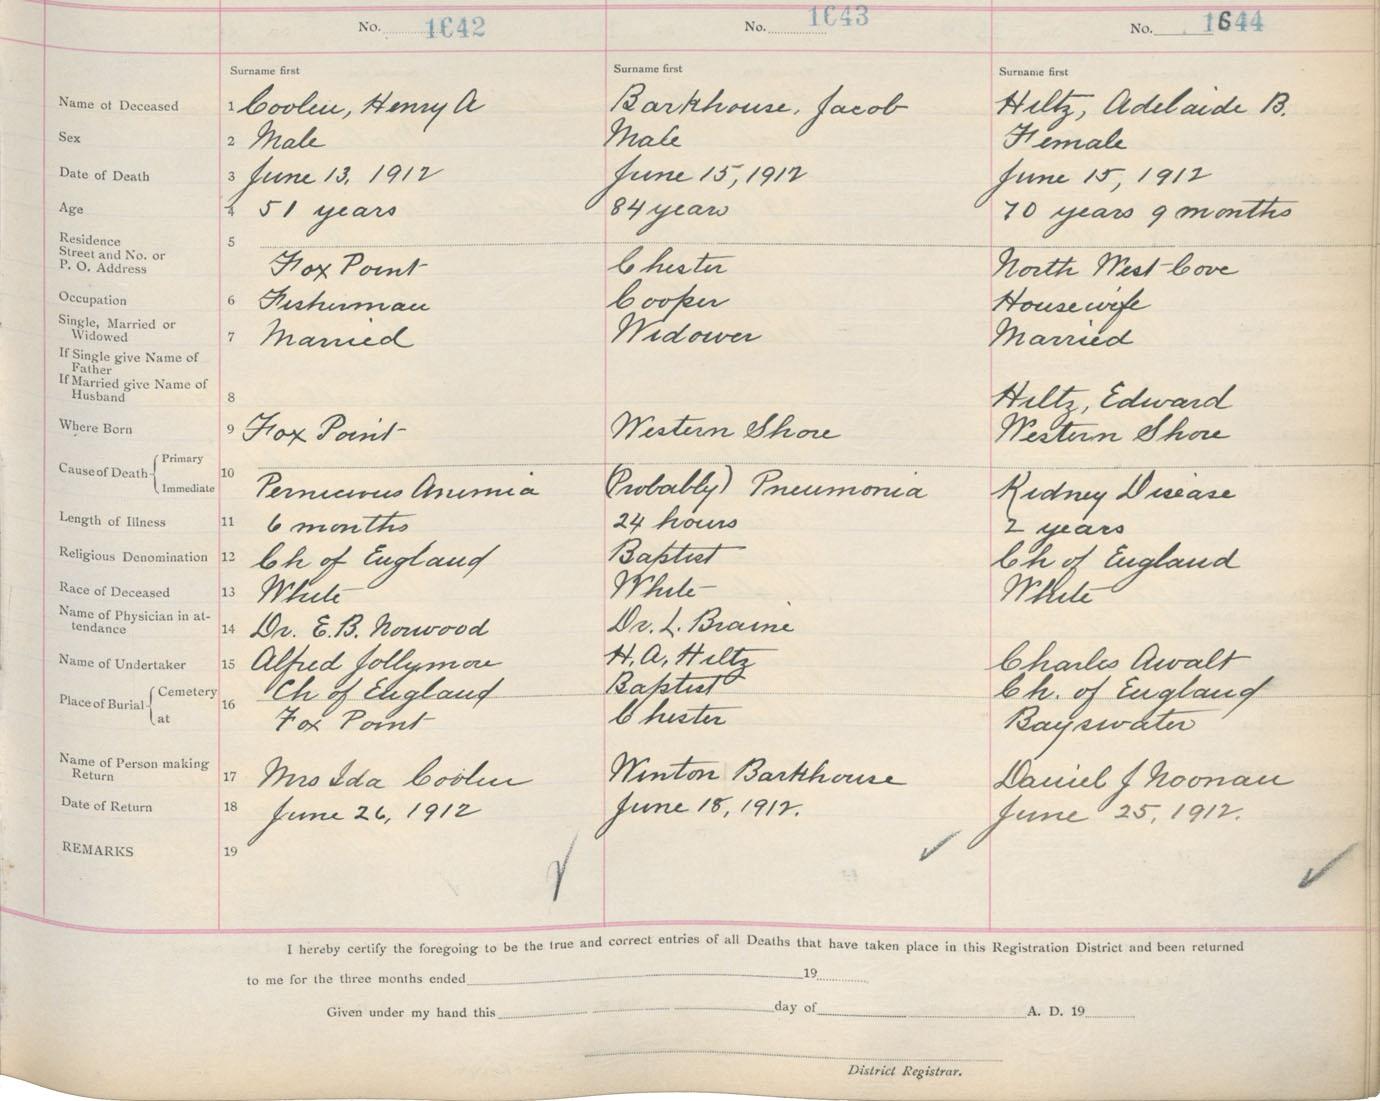 No. 1642 No. 1643 No. 1644
Surname first Surname first Surname first
Name of Deceased 1 Coolen, Henry A Barkhouse, Jacob Hiltz, Adelaide B.
Sex 2 Male Male Female
Date of Death 3 June 13, 1912 June 15, 1912 June 15, 1912
Age 4 51 years 84 years 70 years 9 months
Residence 5
Street and No. or
P. O. Address Fox Point Chester North West Cove
Occupation 6 Fisherman Cooper Housewife
Single, Married or
Widowed 7 Married Widower Married
If Single give Name of
Father
If Married give Name of
Husband 8 Hiltz, Edward
Where Born 9 Fox Point Western Shore Western Shore
Cause of Death Primary 10
Immediate Pernicious Anemia (Probably) Pneumonia Kidney Disease
Length of Illness 11 6 months 24 hours 2 years
Religious Denomination 12 Ch of England Baptist Ch of England
Race of Deceased 13 White White White
Name of Physician in at-
tendance 14 Dr. E.B. Norwood Dr. L. Braine
Name of Undertaker 15 Alfred Jollymore H. A. Hiltz Charles Awalt
Place of Burial Cemetery 16 Ch of England Baptist Ch. of England
at Fox Point Chester Bayswater
Name of Person making
Return 17 Mrs Ida Coolen Winton Barkhouse Daniel J Noonan
Date of Return 18 June 26, 1912 June 18, 1912. June 25, 1912.
REMARKS 19
I hereby certify the foregoing to be the true and correct entries of all Deaths that have taken place in this Registration District and been returned
to me for the three months ended 19
Given under my hand this day of A. D. 19
District Registrar.